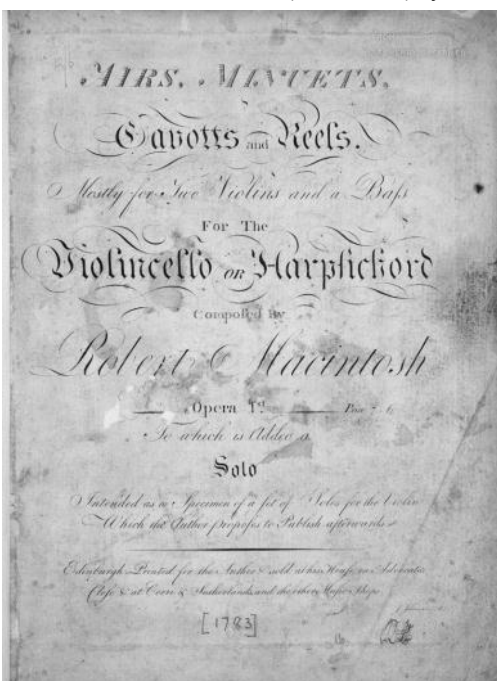 AIRS, MINUETS,
Gavotts and Reels.
Mostly for Two Violins and a Baſs
For The
Violincello OR Harpſichord
Compoſed By
Robert Macintosh
Opera 1st.
To which is Added a
Solo
Intended as a Specimen of a ſet of Solos for the Violin
Which the Author propoſes to Publish afterwards
Edinburgh Printed for the Author & sold at his Houſe in Advocates
Cloſe & at Corri & Sutherlands, and the other Muſic Shops
[1783]